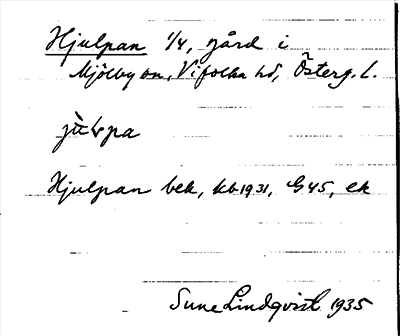 Hjulpan 1/4, gård i
Mjölby sn, Vifolka hd, Österg. l.
jùlpa
Hjulpan bek, kb 1931, G45, ek
Sune Lindqvist 1935